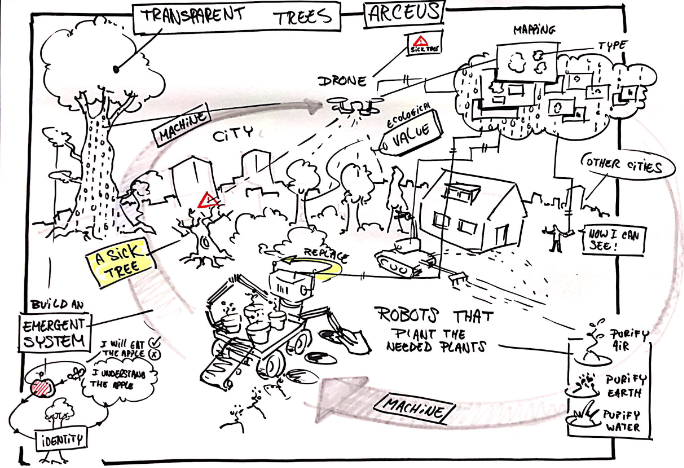 TRANSPARENT TREES
ARCEUS
SICK TREE
MAPPING
TYPE
DRONE
MACHINE
CITY
ECOLOGICAL
VALUE
OTHER CITIES
A SICK
TREE
REPLACE
NOW I CAN
SEE!
BUILD AN
EMERGENT
SYSTEM
I WILL EAT
THE APPLE
I UNDERSTAND
THE APPLE
IDENTITY
ROBOTS THAT
PLANT THE
NEEDED PLANTS
MACHINE
PURIFY
AIR
PURIFY
EARTH
PURIFY
WATER